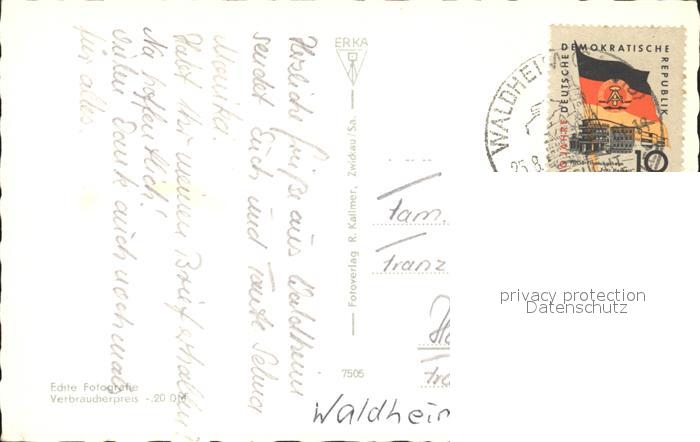 Herzliche Grüße aus Waldheim
sendet Euch und Tante Selma
Monika.
Habt Ihr meinen Brief erhalten?
Na hoffentlich!
Vielen Dank auch nochmals
für alles.
ERKA
Fotoverlag R. Kallmer, Zwickau/Sa.
7505
Echte Fotografie
Verbraucherpreis -.20 DM
Fam.
Franz
Waldheim
WALDHEIM
25.8.
DEUTSCHE DEMOKRATISCHE REPUBLIK
10 JAHRE
10
privacy protection
Datenschutz